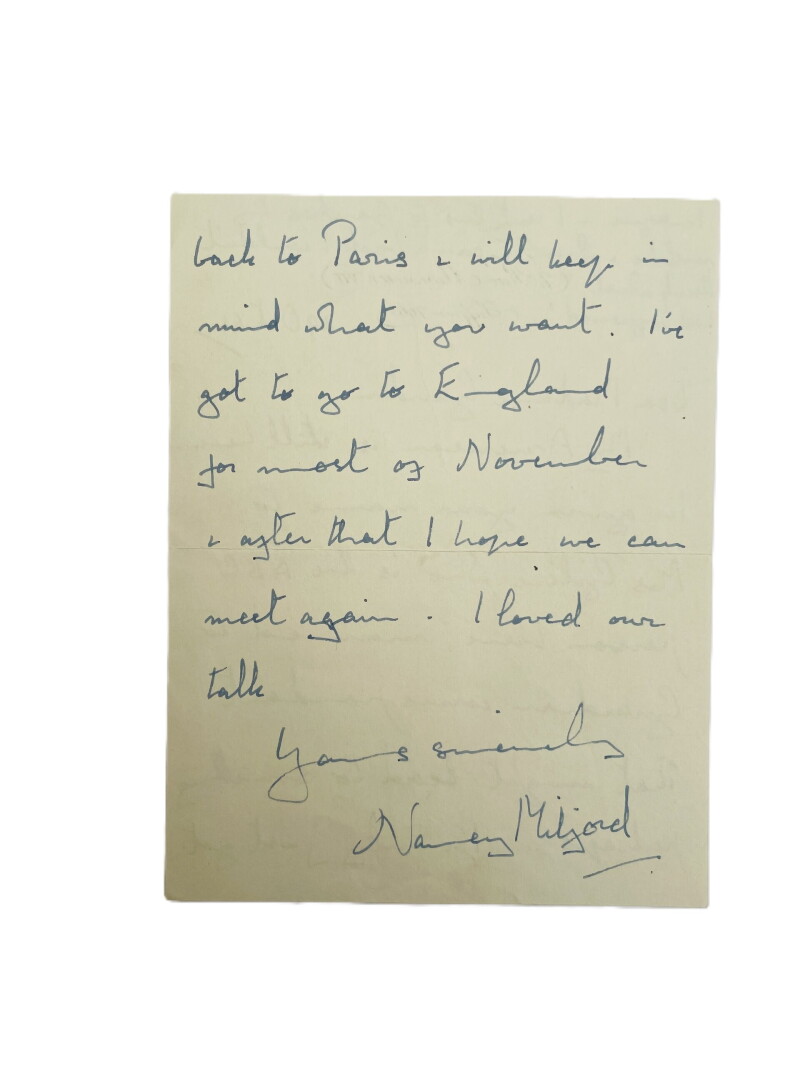 back to Paris & will keep in
mind what you want. I've
got to go to England
for most of November
& after that I hope we can
meet again. I loved our
talk
Yours sincerely
Nancy Mitford